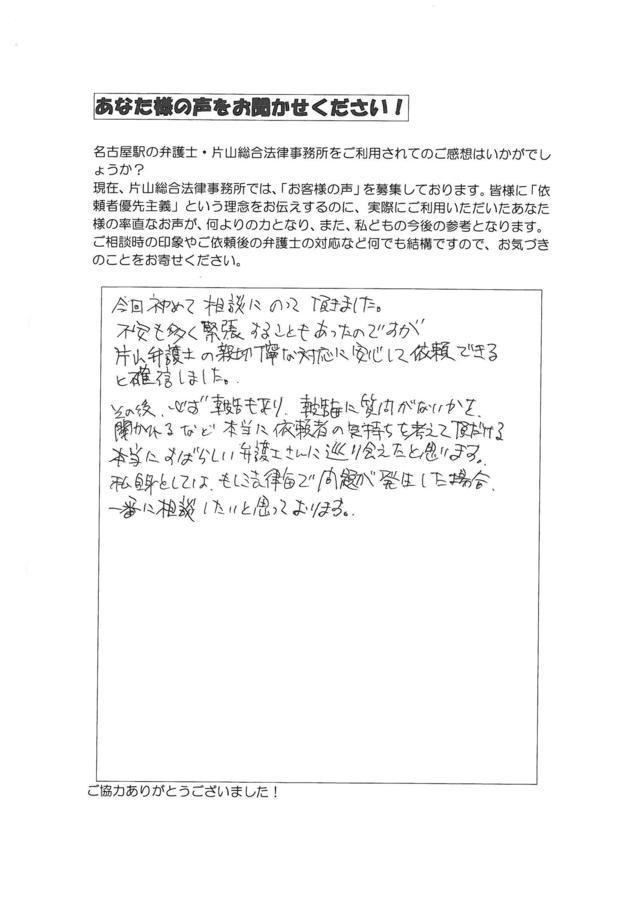 あなた様の声をお聞かせください！
名古屋駅の弁護士・片山総合法律事務所をご利用されてのご感想はいかがでし
ょうか？
現在、片山総合法律事務所では、「お客様の声」を募集しております。皆様に「依
頼者優先主義」という理念をお伝えするのに、実際にご利用いただいたあなた
様の率直なお声が、何よりの力となり、また、私どもの今後の参考となります。
ご相談時の印象やご依頼後の弁護士の対応など何でも結構ですので、お気づき
のことをお寄せください。
今回初めて相談にのって頂きました。
不安も多く緊張することもあったのですが
片山弁護士の親切丁寧な対応に安心して依頼できる
と確信しました。
その後、必ず報告もあり、
に質問がないかを
聞かれるなど本当に依頼者の気持ちを考えて頂だける
本当にすばらしい弁護士さんに巡り会えたと思います。
私自身としては、もし法律面で問題が発生した場合、
一番に相談したいと思っております。
ご協力ありがとうございました！